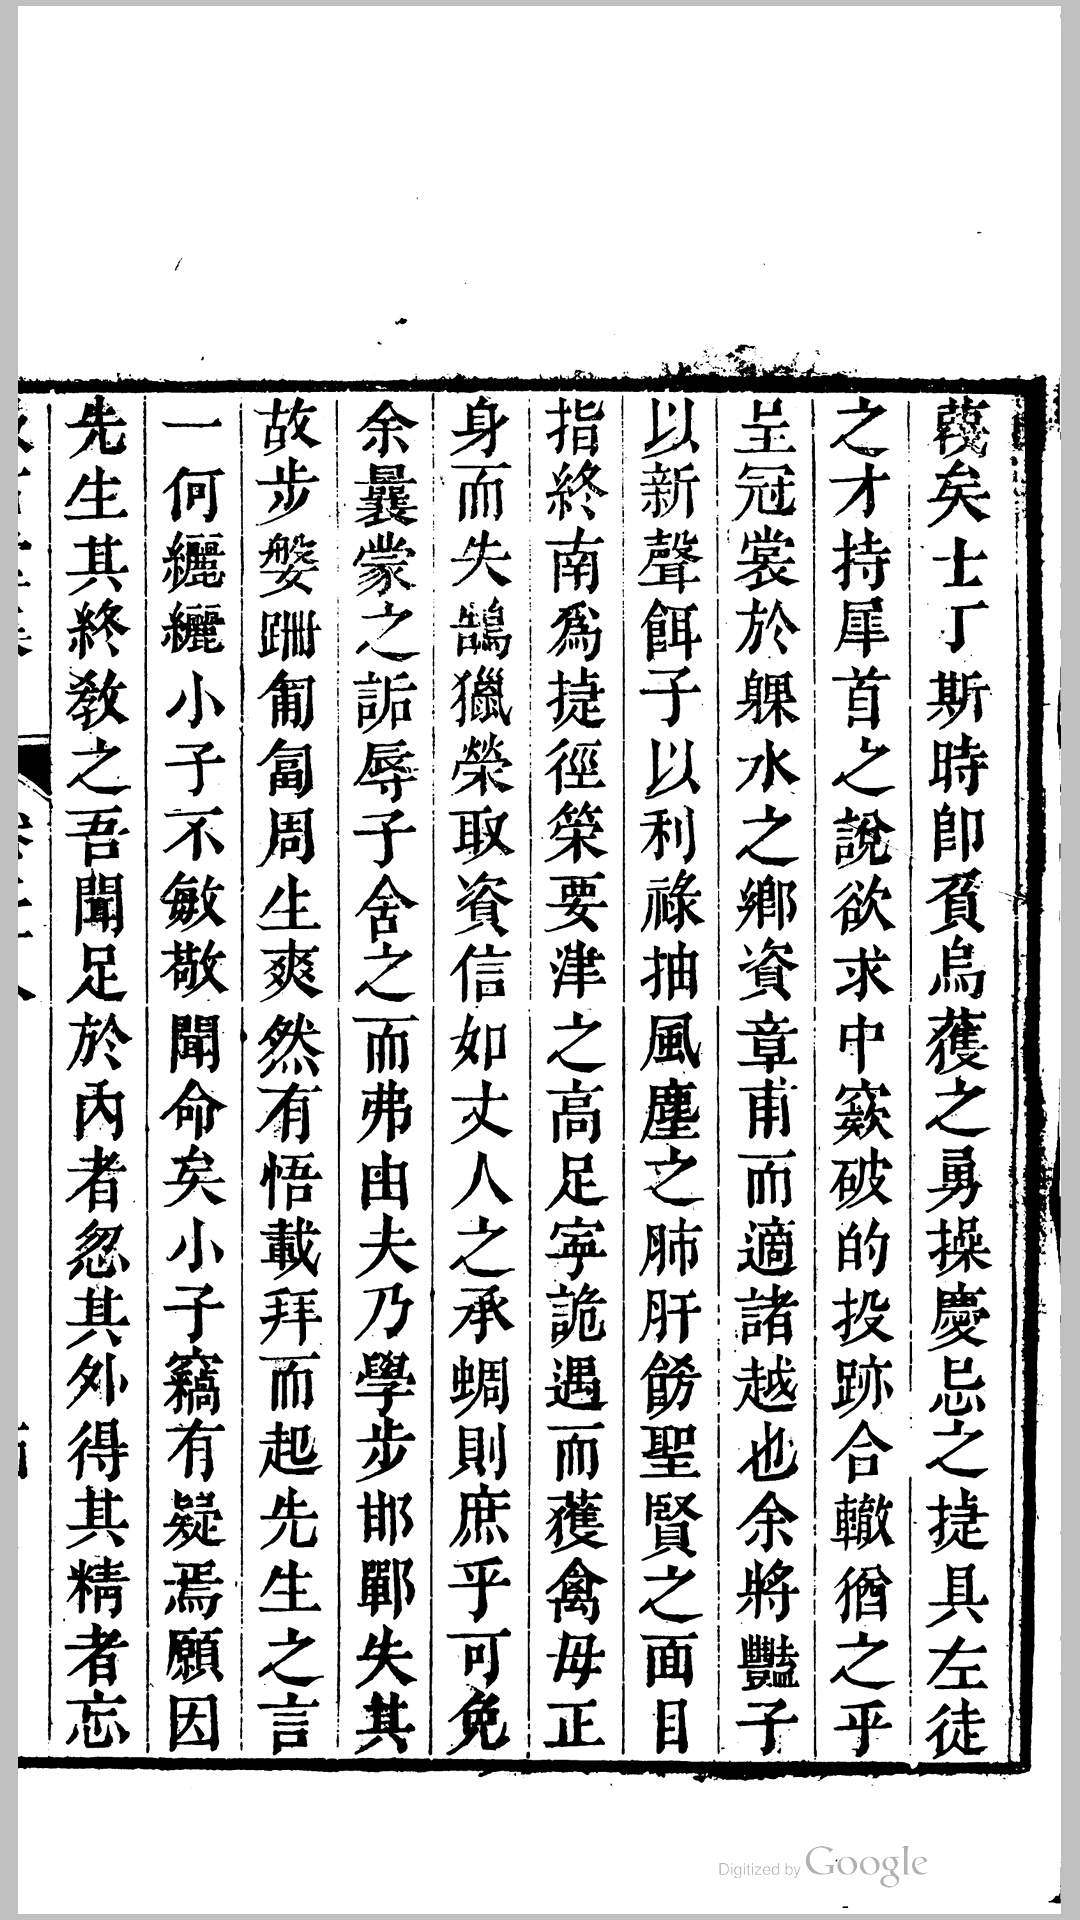 矣士丁斯時卽賁烏獲之勇操慶忌之捷具左徒
之才持犀首之說欲求中窾破的投跡合轍猶之乎
呈冠裳於躶水之鄉資章甫而適諸越也余將豔子
以新聲餌子以利祿抽風塵之肺肝餙聖賢之面目
指終南爲捷徑筞要津之高足寜詭遇而獲禽毋正
身而失鵠獵榮取資信如丈人之承蜩則庶乎可免
余曩蒙之詬辱子舍之而弗由夫乃學步邯鄲失其
故步媻跚匍匐周生爽然有悟載拜而起先生之言
一何纚纚小子不敏敬聞命矣小子竊有疑焉願因
先生其終教之吾聞足於內者忽其外得其精者忘
Digitized by Google